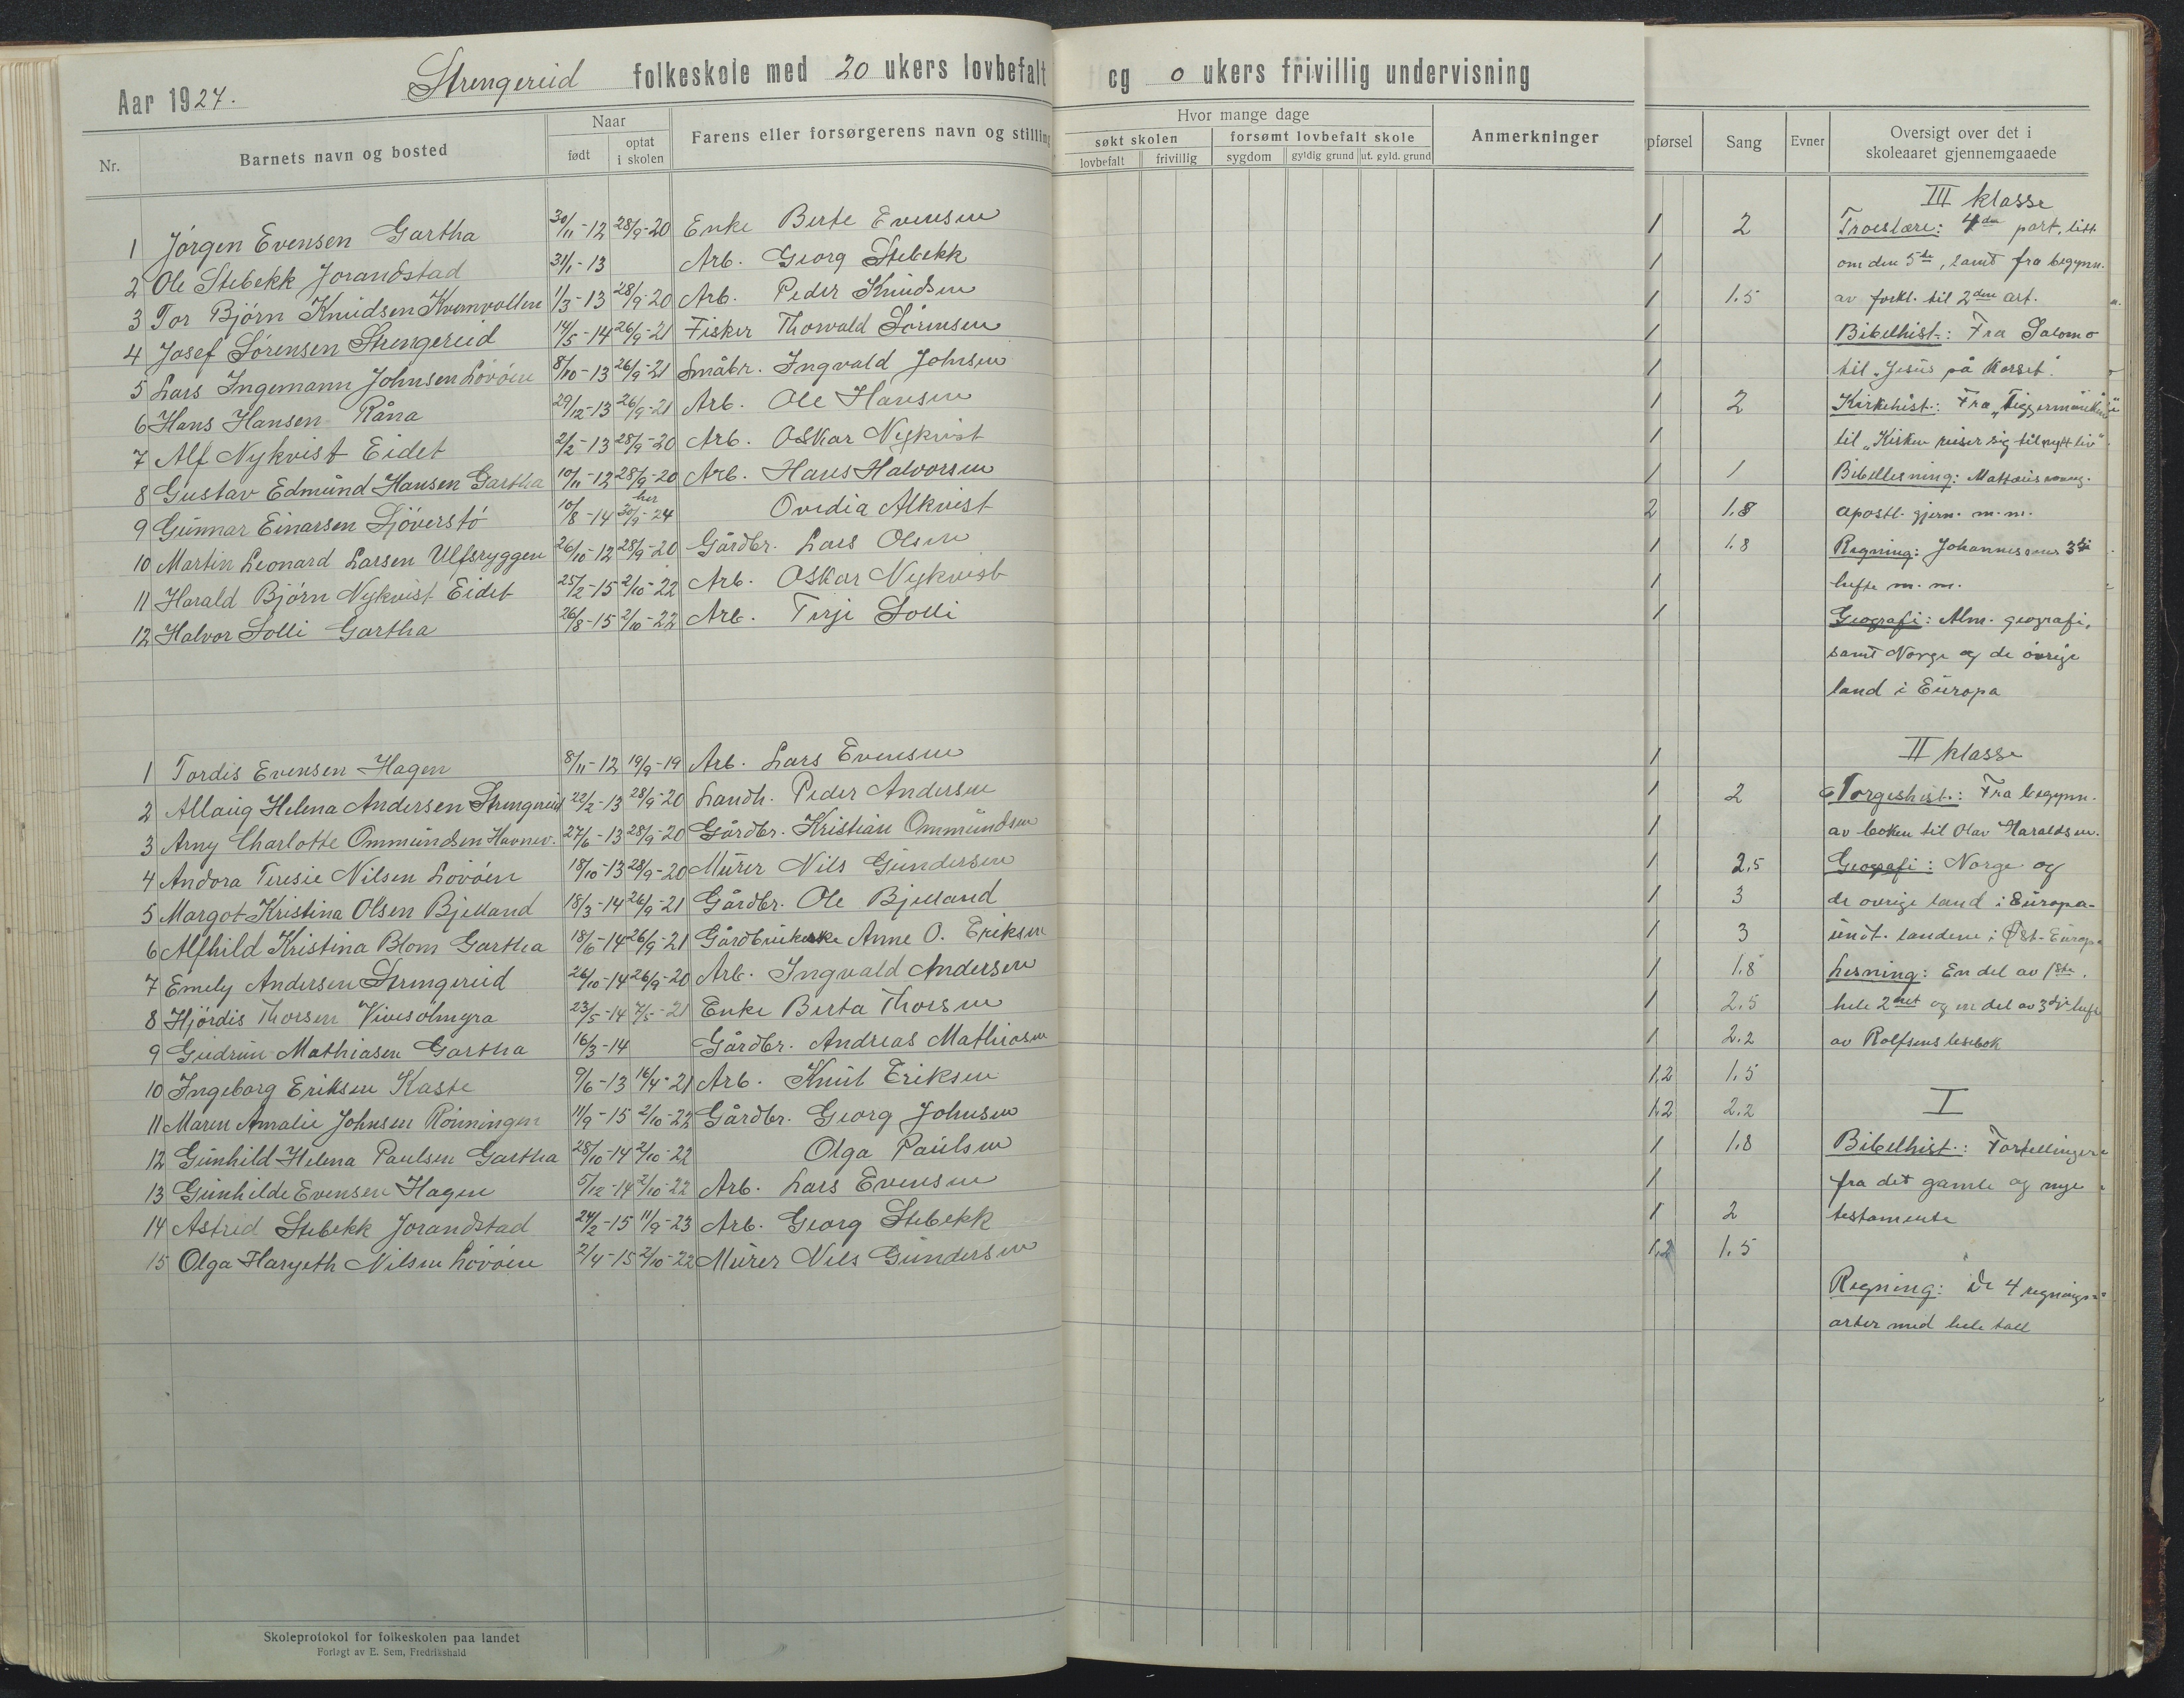 Aar 1924.
Strengereid folkeskole med 20 ukers lovbefalt og 0 ukers frivillig undervisning
Nr. Barnets navn og bosted
Naar
født optat i skolen
Farens eller forsørgerens navn og stilling
Hvor mange dage
søkt skolen forsømt lovbefalt skole
lovbefalt frivillig sygdom gyldig grund ut. gyld. grund
Anmerkninger
pførsel Sang Evner
Oversigt over det i
skoleaaret gjennemgaaede
1 Jørgen Evensen Gartha 30/11-12 28/9-20 Enke Berte Evensen 1 2
2 Ole Stebekk Jorandstad 31/1-13 Arb. Georg Stebekk 1
3 Tor Bjørn Knudsen Kvernvollen 1/3-13 28/9-20 Arb. Peder Knudsen 1 1.5
4 Josef Sørensen Strengereid 14/5-14 26/9-21 Fisker Thorvald Sørensen 1
5 Lars Ingemann Johnsen Lövöen 8/10-13 26/9-21 Småbr. Ingvald Johnsen 1
6 Hans Hansen Råna 29/12-13 26/9-21 Arb. Ole Hansen 1 2
7 Alf Nykvist Eidet 2/2-13 28/9-20 Arb. Oskar Nykvist 1
8 Gustav Edmund Hansen Gartha 10/11-12 28/9-20 Arb. Hans Halvorsen 1 1
9 Gunnar Einarsen Sjöverstö 10/8-14 her 30/9-24 Ovedia Alkvist 2 1.8
10 Martin Leonard Larsen Ulfsryggen 26/10-12 28/9-20 Gårdbr. Lars Olsen 1 1.8
11 Harald Bjørn Nykvist Eidet 25/2-15 2/10-22 Arb. Oskar Nykvist 1
12 Halvor Solli Gartha 26/8-15 2/10-22 Arb. Terje Solli 1
1 Tordis Evensen Hagen 8/11-12 19/9-19 Arb. Lars Evensen 1
2 Allaug Helena Andersen Strengereid 22/2-13 28/9-20 Landh. Peder Andersen 1 2
3 Arny Charlotte Ommundsen Havnev. 27/6-13 28/9-20 Gårdbr. Kristian Ommundsen 1
4 Andora Teresie Nilsen Lövöen 18/10-13 28/9-20 Murer Nils Gundersen 1 2.5
5 Margot Kristina Olsen Bjelland 18/3-14 26/9-21 Gårdbr. Ole Bjelland 1 3
6 Alfhild Kristina Blom Gartha 18/6-14 26/9-21 Gårdbrukerske Anne O. Eriksen 1 3
7 Emely Andersen Strengereid 26/10-14 26/9-20 Arb. Ingvald Andersen 1 1.8
8 Hjördis Thorsen Vivesölmyra 23/5-14 7/5-21 Enke Berta Thorsen 1 2.5
9 Gudrun Mathiasen Gartha 16/3-14 Gårdbr. Andreas Mathiasen 1 2.2
10 Ingeborg Eriksen Kaste 9/6-13 16/4-21 Arb. Knut Eriksen 1,2 1.5
11 Maren Amalie Johnsen Rönningen 11/9-15 2/10-22 Gårdbr. Georg Johnsen 1,2 2.2
12 Gunhild Helena Paulsen Gartha 28/10-14 2/10-22 Olga Paulsen 1 1.8
13 Gunhilde Evensen Hagen 5/12-14 2/10-22 Arb. Lars Evensen 1
14 Astrid Stebekk Jorandstad 24/2-15 11/9-23 Arb. Georg Stebekk 1 2
15 Olga Haryeth Nilsen Lövöen 2/4-15 2/10-22 Murer Nils Gundersen 1,2 1.5
III klasse
Troeslære: 4de part, litt
om den 5te, samt fra begynn.
av forkl. til 2den art.
Bibelhist.: Fra Salomo
til "Jesus på korset".
Kirkehist.: Fra "Tiggermunkene"
til "Kirken reiser sig til nytt liv".
Bibellesning: Mattæus evang.
apostl. gjern. m.m.
Regning: Johannesens 3dje
hefte m.m.
Geografi: Alm. geografi,
samt Norge og de övrige
land i Europa
II klasse
Norgeshist.: Fra begynn.
av boken til Olav Haraldsen.
Geografi: Norge og
de övrige land i Europa-
unt. landene i Øst-Europa
Lesning: En del av 1ste,
hele 2net og en del av 3dje hefte
av Rolfsens lesebok
I
Bibelhist.: Fortellinger
fra det gamle og nye
testamente
Regning: De 4 regnings-
arter med hele tall
Skoleprotokol for folkeskolen paa landet
Forlagt av E. Sem, Fredrikshald